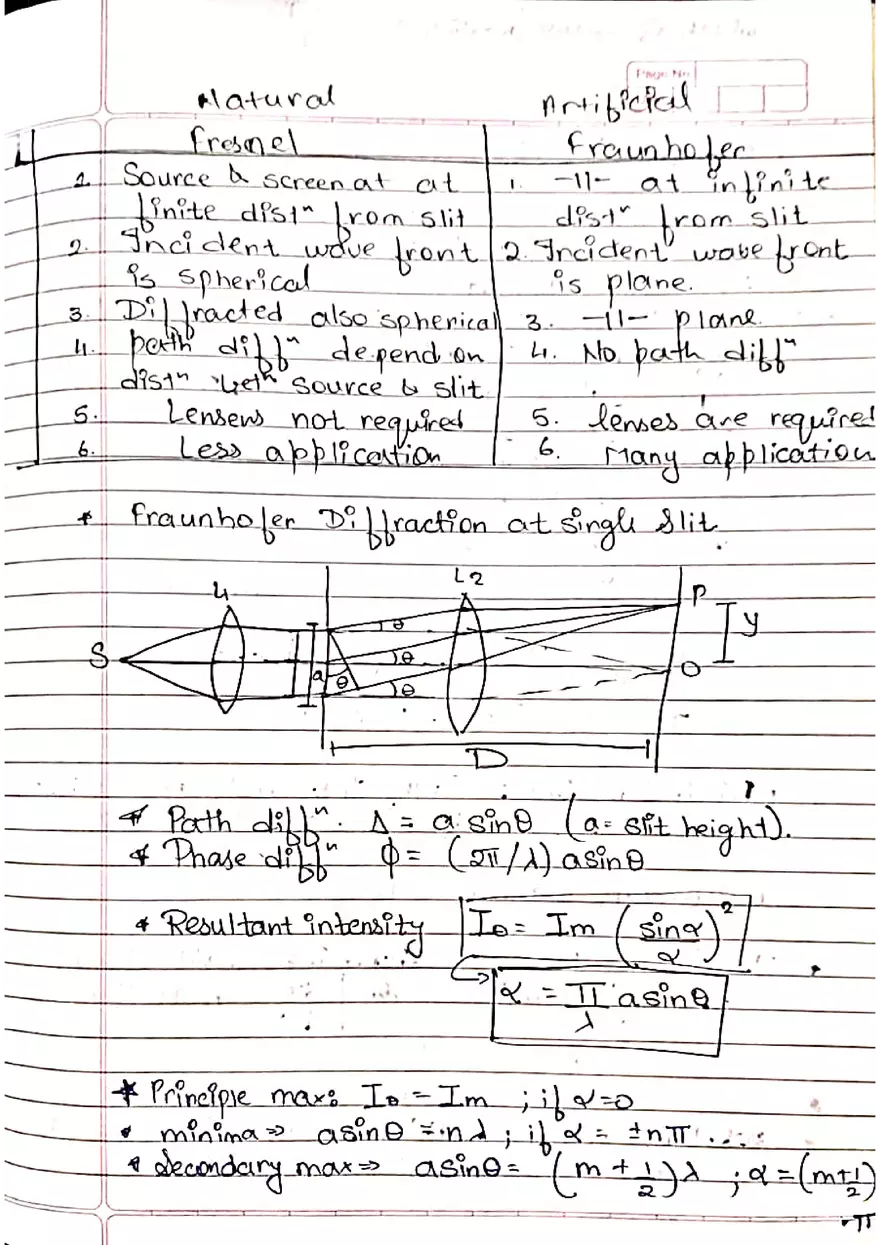 Page No
Natural Artificial
Fresnel Fraunhofer
1. Source & screen at at 1. -11- at infinite
finite distⁿ from slit distⁿ from slit
2. Incident wave front 2. Incident wave front
is spherical is plane.
3. Diffracted also spherical 3. -11- plane
4. path diffⁿ depend on 4. No path diffⁿ
distⁿ betⁿ source & slit
5. Lensens not required 5. lenses are required
6. Less application 6. Many application
* Fraunhofer Diffraction at single slit
L1 L2 P
S θ y
a θ θ O
θ
D
* Path diffⁿ. Δ = a sinθ (a= slit height).
* Phase diffⁿ ϕ = (2π/λ) a sinθ
* Resultant intensity Iθ = Im (sinα/α)²
→ α = π/λ a sinθ
* Principle max: Iθ = Im ; if α=0
• minima => a sinθ = nλ ; if α = ±nπ ....
* Secondary max => a sinθ = (m + 1/2)λ ; α = (m+1/2)
•π